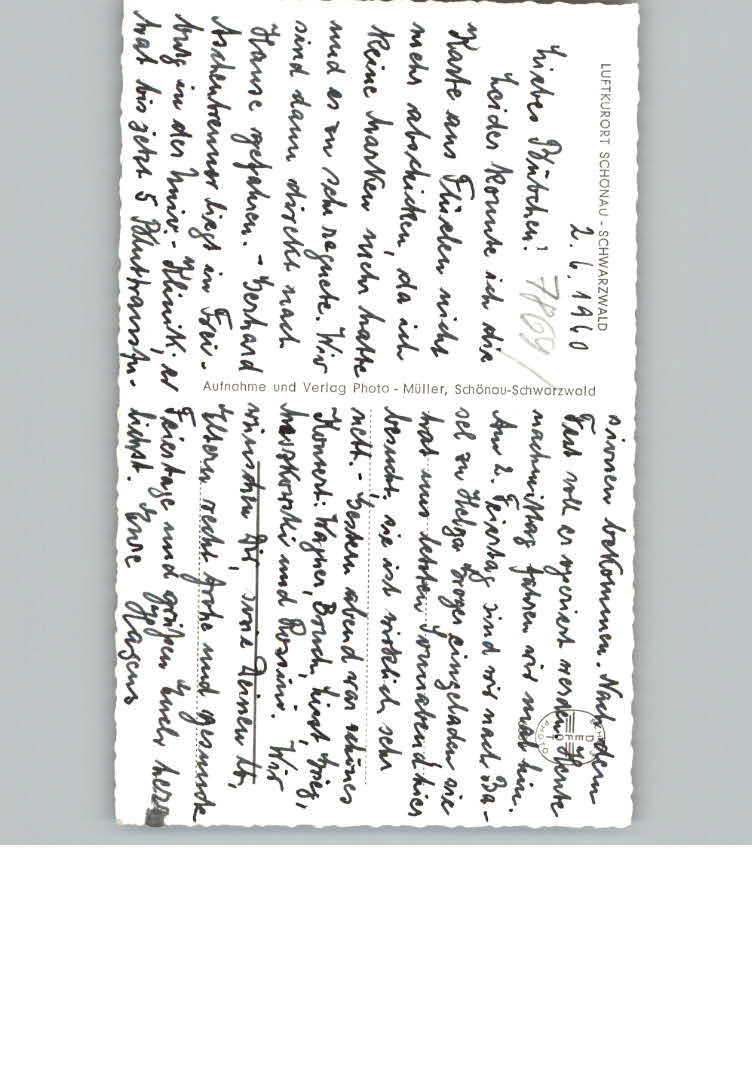 LUFTKURORT SCHÖNAU - SCHWARZWALD
2. 6. 1960
Liebes Pütschen! 7869/
Leider konnte ich die
Karte aus Flüelen nicht
mehr abschicken, da ich
keine Marken mehr hatte
und es zu sehr regnete. Wir
sind dann direkt nach
Hause gefahren. - Gerhard
Aschenbrenner liegt in Frei-
burg in der Univ.- Klinik, er
hat bis jetzt 5 Bluttransfu-
Aufnahme und Verlag Photo - Müller, Schönau-Schwarzwald
sionen bekommen. Nach dem
Fest soll er operiert werden. Heute
nachmittag fahren wir mal hin.
Am 2. Feiertag sind wir nach Ba-
sel zu Helga eingeladen. Sie
hat uns letzten Sonnabend hier
besucht, sie ist wirklich sehr
nett. - Gestern abend war schönes
Konzert: Wagner, Bruch, Liszt, Grieg,
Moszkowski und Rossini. Wir
wünschen Dir, sowie Deinen lb.
Eltern recht frohe und gesunde
Feiertage und grüßen Euch herz-
lichst. Eure Hagens